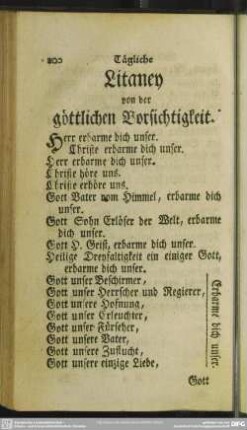 200 Tägliche
Litaney
von der
göttlichen Vorsichtigkeit.
Herr erbarme dich unser.
Christe erbarme dich unser.
Herr erbarme dich unser.
Christe höre uns.
Christe erhöre uns.
Gott Vater vom Himmel, erbarme dich
unser.
Gott Sohn Erlöser der Welt, erbarme
dich unser.
Gott H. Geist, erbarme dich unser.
Heilige Dreyfaltigkeit ein einiger Gott,
erbarme dich unser.
Gott unser Beschirmer,
Gott unser Herrscher und Regierer,
Gott unsere Hofnung,
Gott unser Erleuchter,
Gott unser Fürseher,
Gott unsere Vater,
Gott unsere Zuflucht,
Gott unsere einzige Liebe,
Erbarme dich unser.
Gott